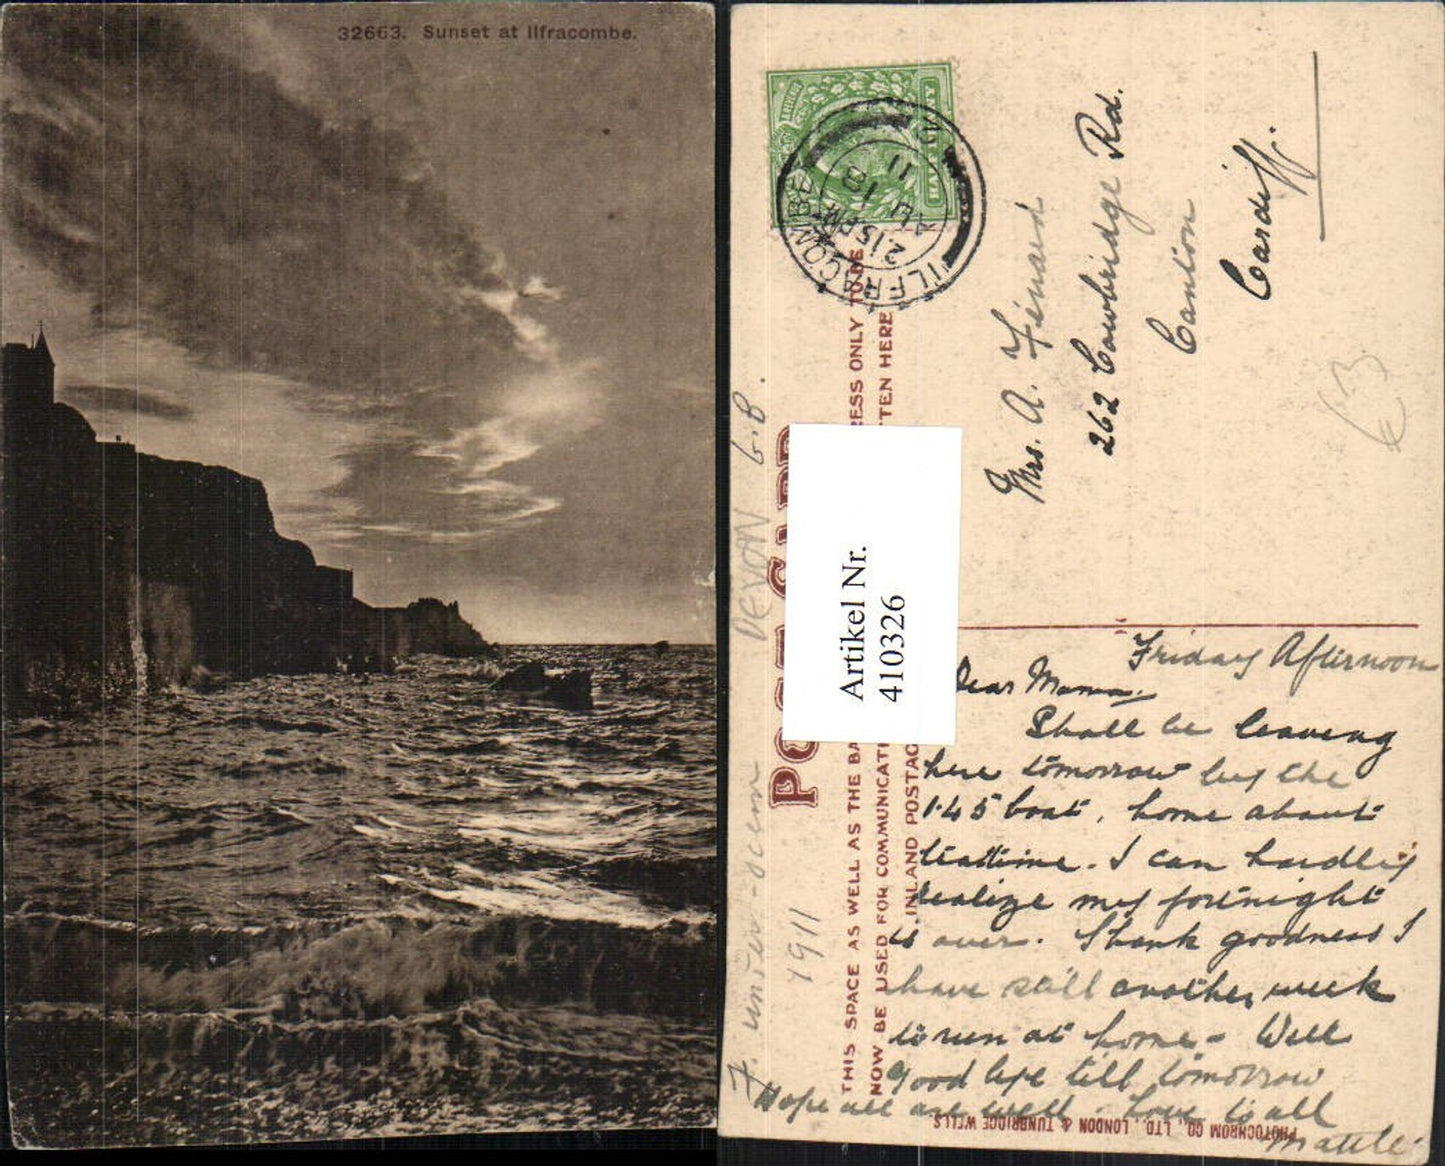 32663. Sunset at Ilfracombe.
HALF PENNY
ILFRACOMBE
2.15 PM
AU 18
11
POST CARD
THIS SPACE AS WELL AS THE BA
RESS ONLY TO BE
NOW BE USED FOR COMMUNICATI
TTEN HERE
INLAND POSTAG
Artikel Nr.
410326
DEVON G.B.
1911
Mrs. A.
262 Cowbridge Rd.
Canton
Cardiff.
€3
Friday Afternoon
Dear Mama,
Shall be leaving
here tomorrow by the
1.45 boat, home about
teatime. I can hardly
realize my fortnight
is over. Thank goodness I
have still another week
to run at home - Well
good bye till tomorrow
Hope all are well - Love to all
Mattie
PHOTOCHROM CO., LTD., LONDON & TUNBRIDGE WELLS.